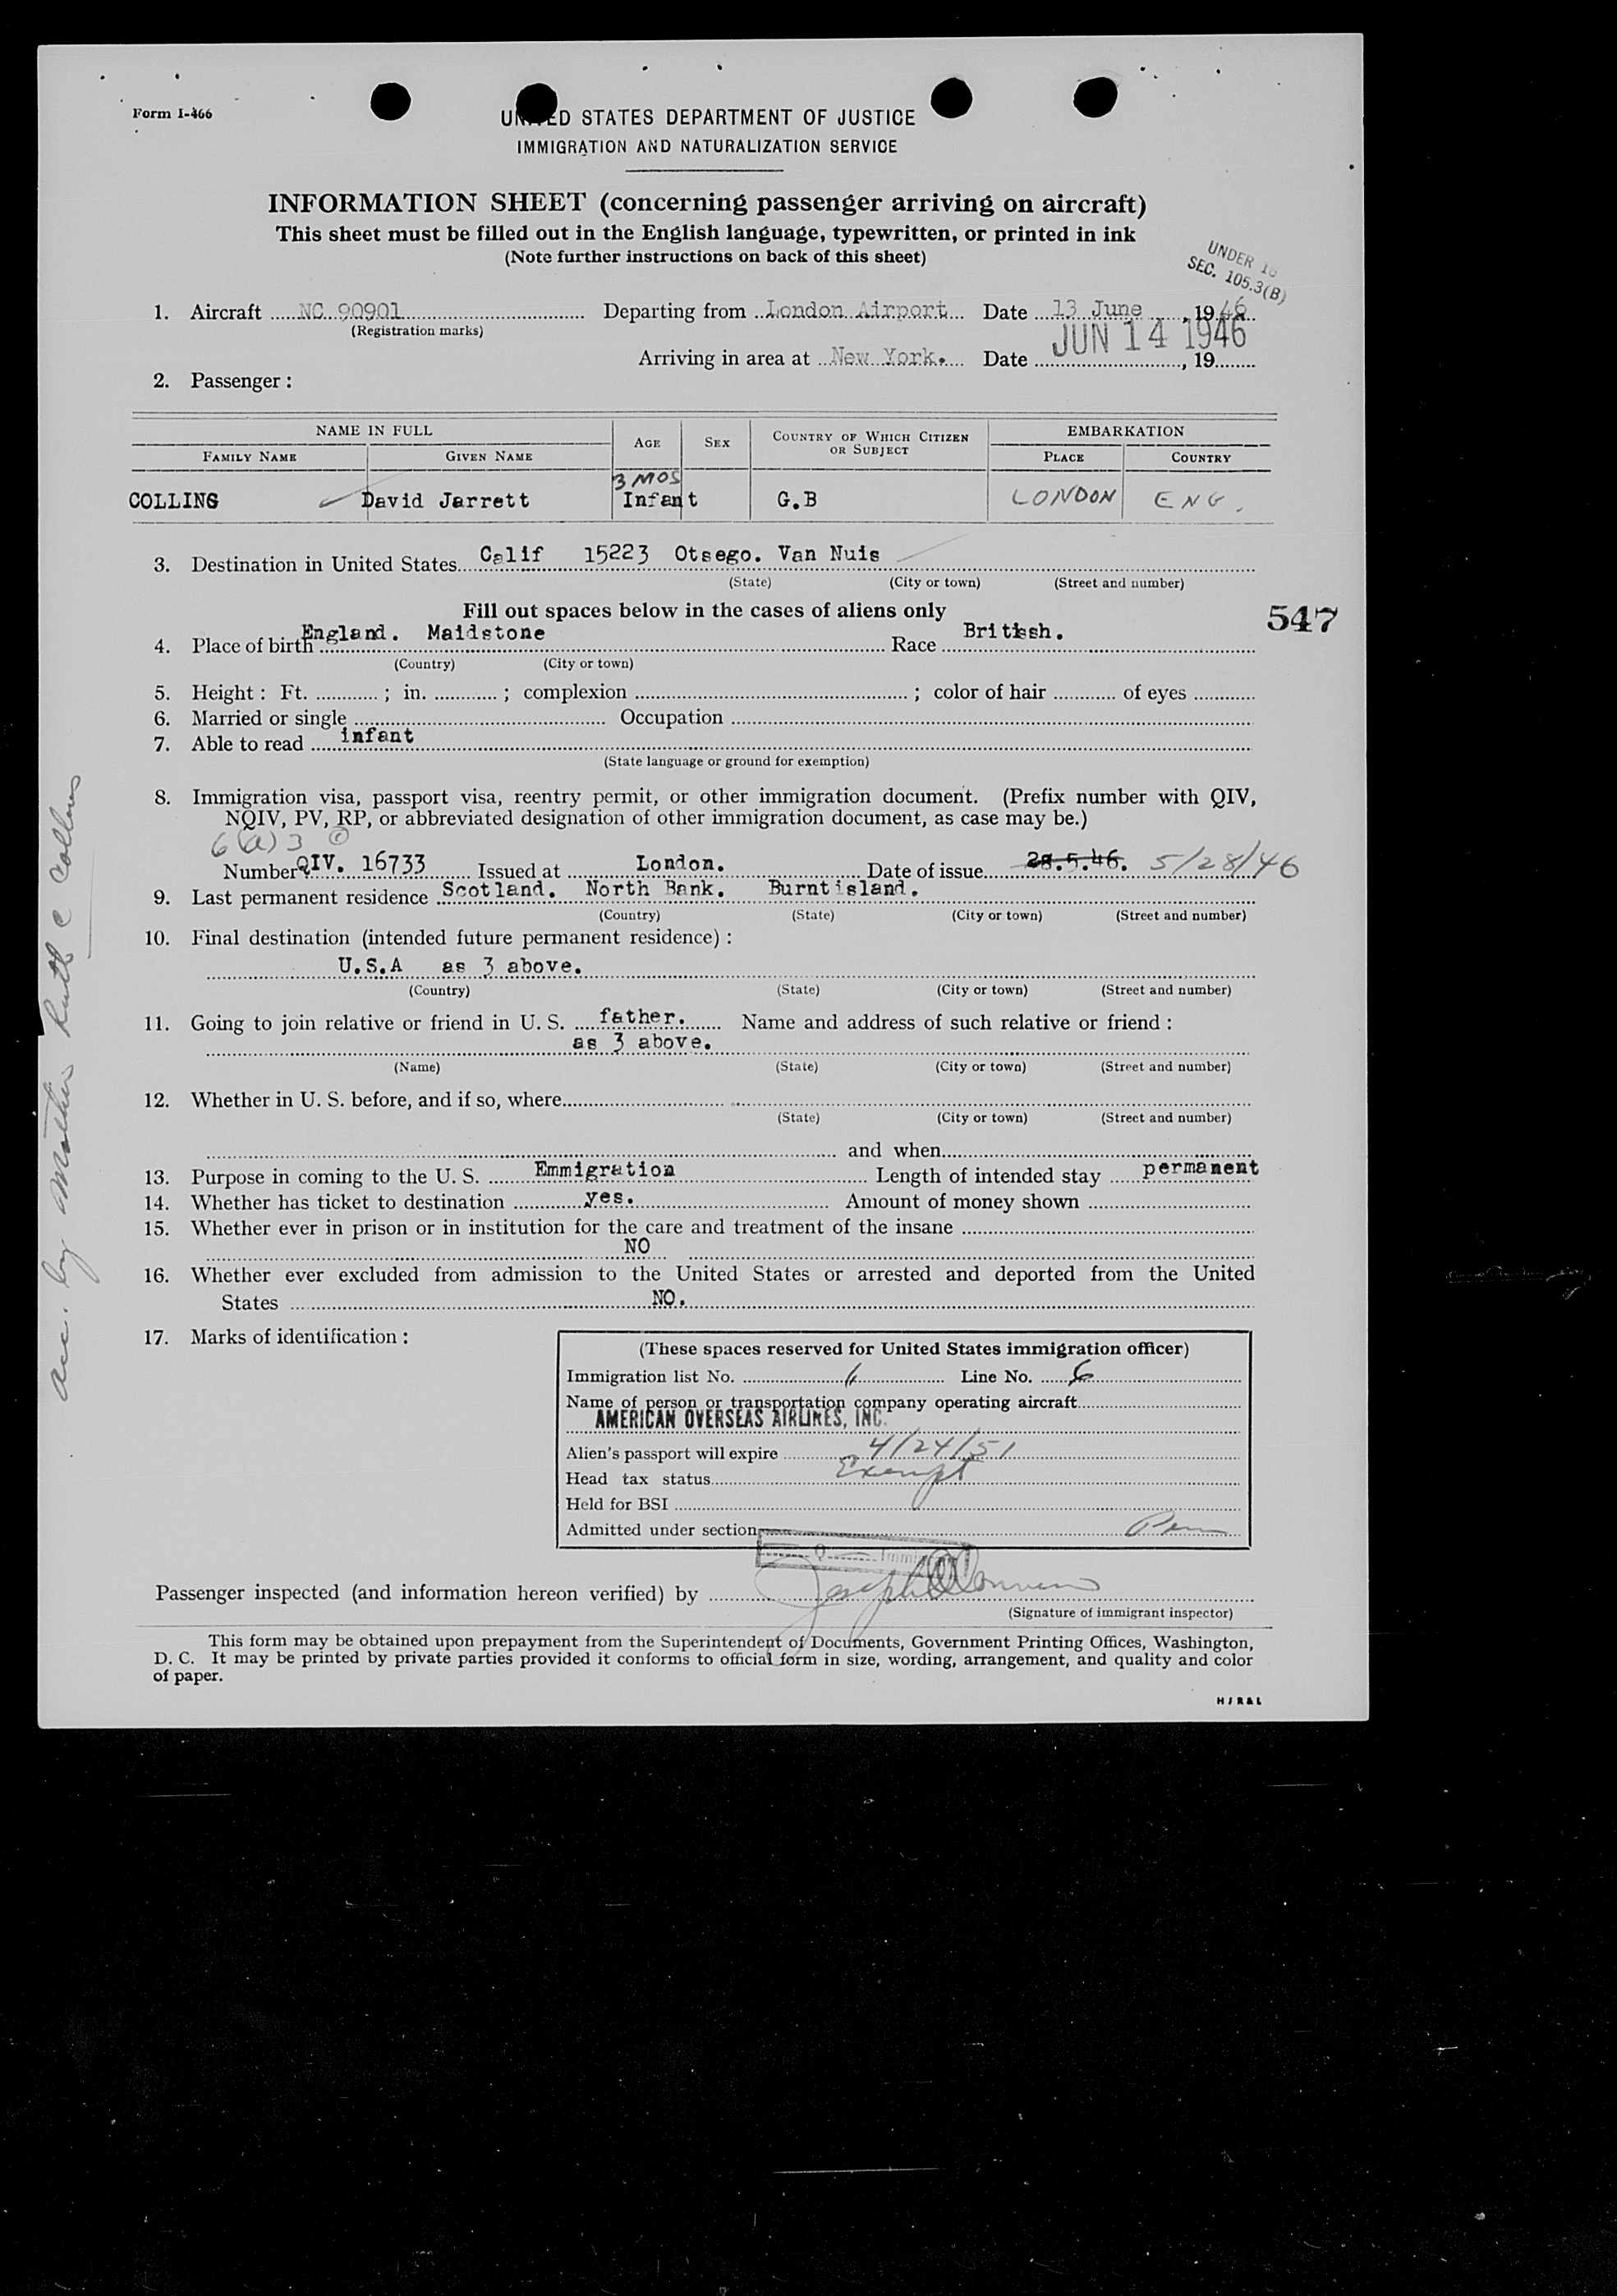 Form I-466
UNITED STATES DEPARTMENT OF JUSTICE
IMMIGRATION AND NATURALIZATION SERVICE
INFORMATION SHEET (concerning passenger arriving on aircraft)
This sheet must be filled out in the English language, typewritten, or printed in ink
(Note further instructions on back of this sheet)
UNDER 16
SEC. 105.3(B)
1. Aircraft NC 90901 Departing from London Airport Date 13 June, 1946
(Registration marks)
JUN 14 1946
Arriving in area at New York. Date , 19
2. Passenger:
NAME IN FULL AGE SEX COUNTRY OF WHICH CITIZEN OR SUBJECT EMBARKATION
FAMILY NAME GIVEN NAME PLACE COUNTRY
3 MOS
COLLINS David Jarrett Infant G.B LONDON ENG.
3. Destination in United States Calif 15223 Otsego. Van Nuis
(State) (City or town) (Street and number)
Fill out spaces below in the cases of aliens only
547
4. Place of birth England. Maidstone Race British.
(Country) (City or town)
5. Height: Ft. ; in. ; complexion ; color of hair of eyes
6. Married or single Occupation
7. Able to read infant
(State language or ground for exemption)
8. Immigration visa, passport visa, reentry permit, or other immigration document. (Prefix number with QIV,
NQIV, PV, RP, or abbreviated designation of other immigration document, as case may be.)
6(a)3 ©
Number QIV. 16733 Issued at London. Date of issue 28.5.46. 5/28/46
9. Last permanent residence Scotland. North Bank. Burntisland.
(Country) (State) (City or town) (Street and number)
10. Final destination (intended future permanent residence):
U.S.A as 3 above.
(Country) (State) (City or town) (Street and number)
11. Going to join relative or friend in U. S. father. Name and address of such relative or friend:
as 3 above.
(Name) (State) (City or town) (Street and number)
12. Whether in U. S. before, and if so, where
(State) (City or town) (Street and number)
and when
13. Purpose in coming to the U. S. Emmigration Length of intended stay permanent
14. Whether has ticket to destination yes. Amount of money shown
15. Whether ever in prison or in institution for the care and treatment of the insane
NO
16. Whether ever excluded from admission to the United States or arrested and deported from the United
States NO.
17. Marks of identification:
(These spaces reserved for United States immigration officer)
Immigration list No. 6 Line No. 6
Name of person or transportation company operating aircraft
AMERICAN OVERSEAS AIRLINES, INC.
Alien's passport will expire 4/24/51
Head tax status Exempt
Held for BSI
Admitted under section Pem
Passenger inspected (and information hereon verified) by Joseph
(Signature of immigrant inspector)
This form may be obtained upon prepayment from the Superintendent of Documents, Government Printing Offices, Washington,
D. C. It may be printed by private parties provided it conforms to official form in size, wording, arrangement, and quality and color
of paper.
H J R & L
acc. by Mother Ruth C Collins